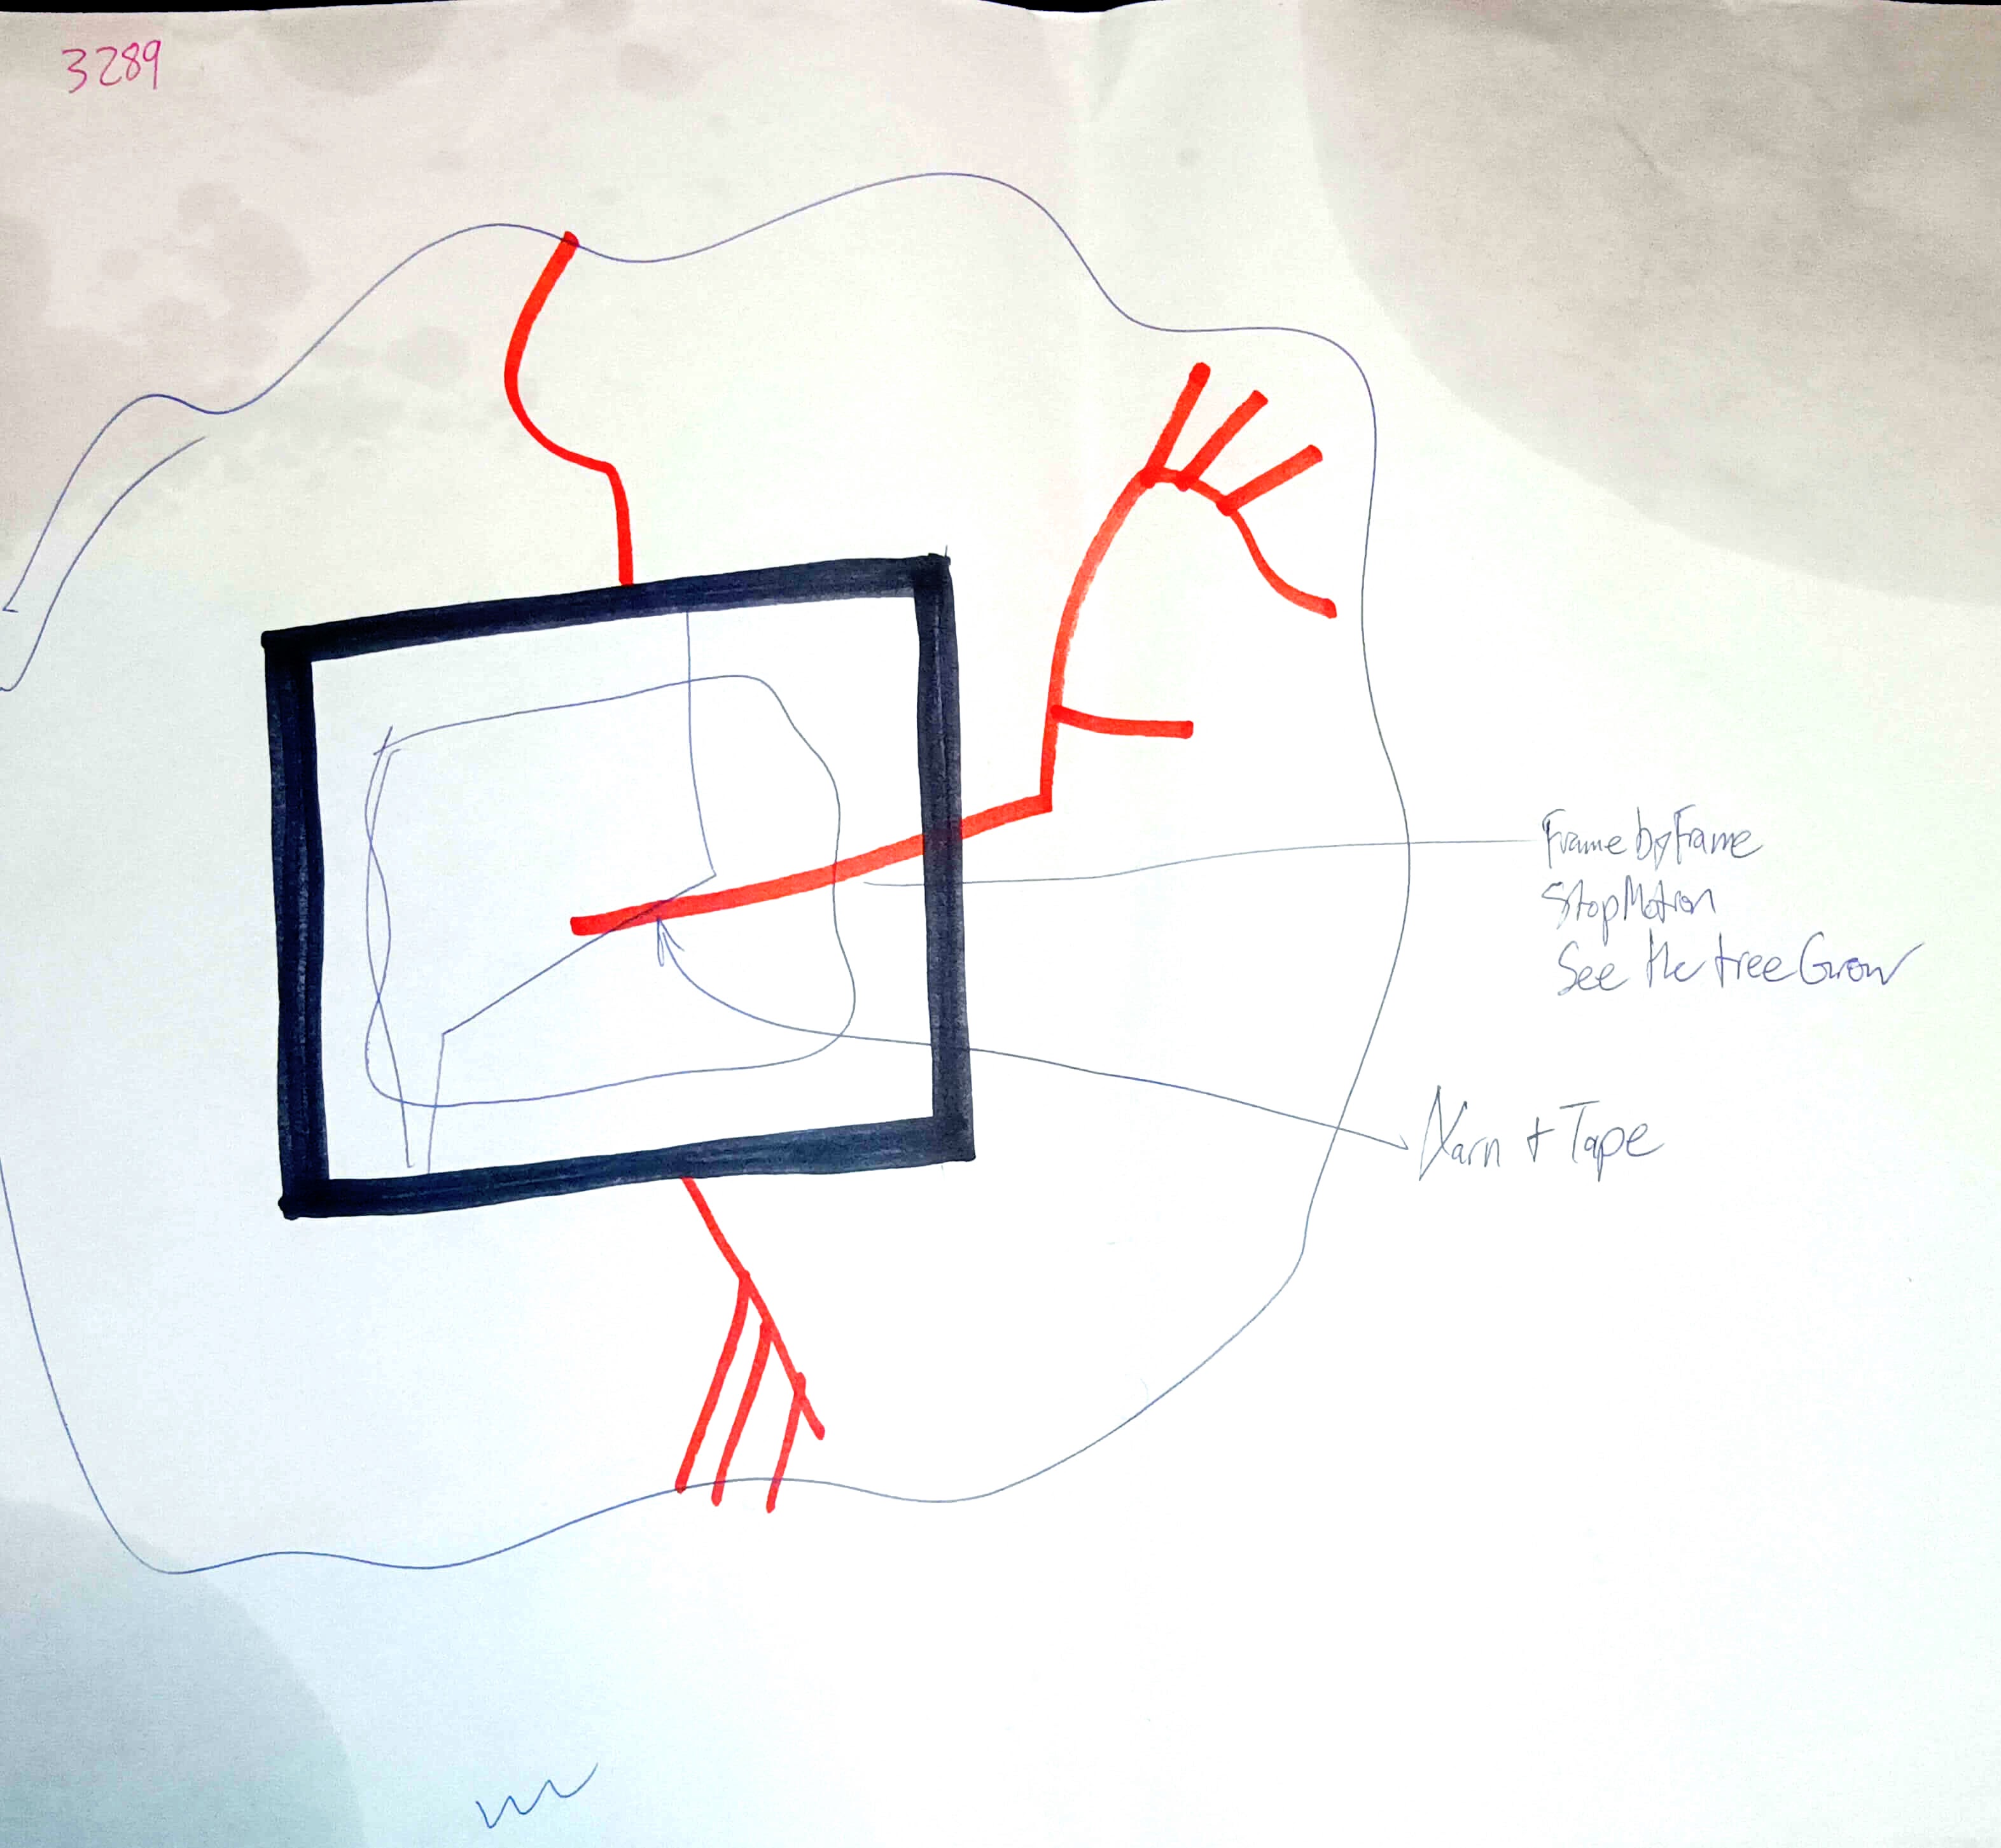 3289
Frame by Frame
Stop Motion
See the tree Grow
Yarn + Tape